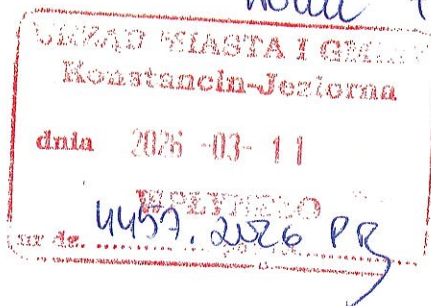 URZĄD MIASTA I GMINY
Konstancin-Jeziorna
dnia 2026 -03- 11
WPŁYNĘŁO
nr dz. 4457.2026 PR